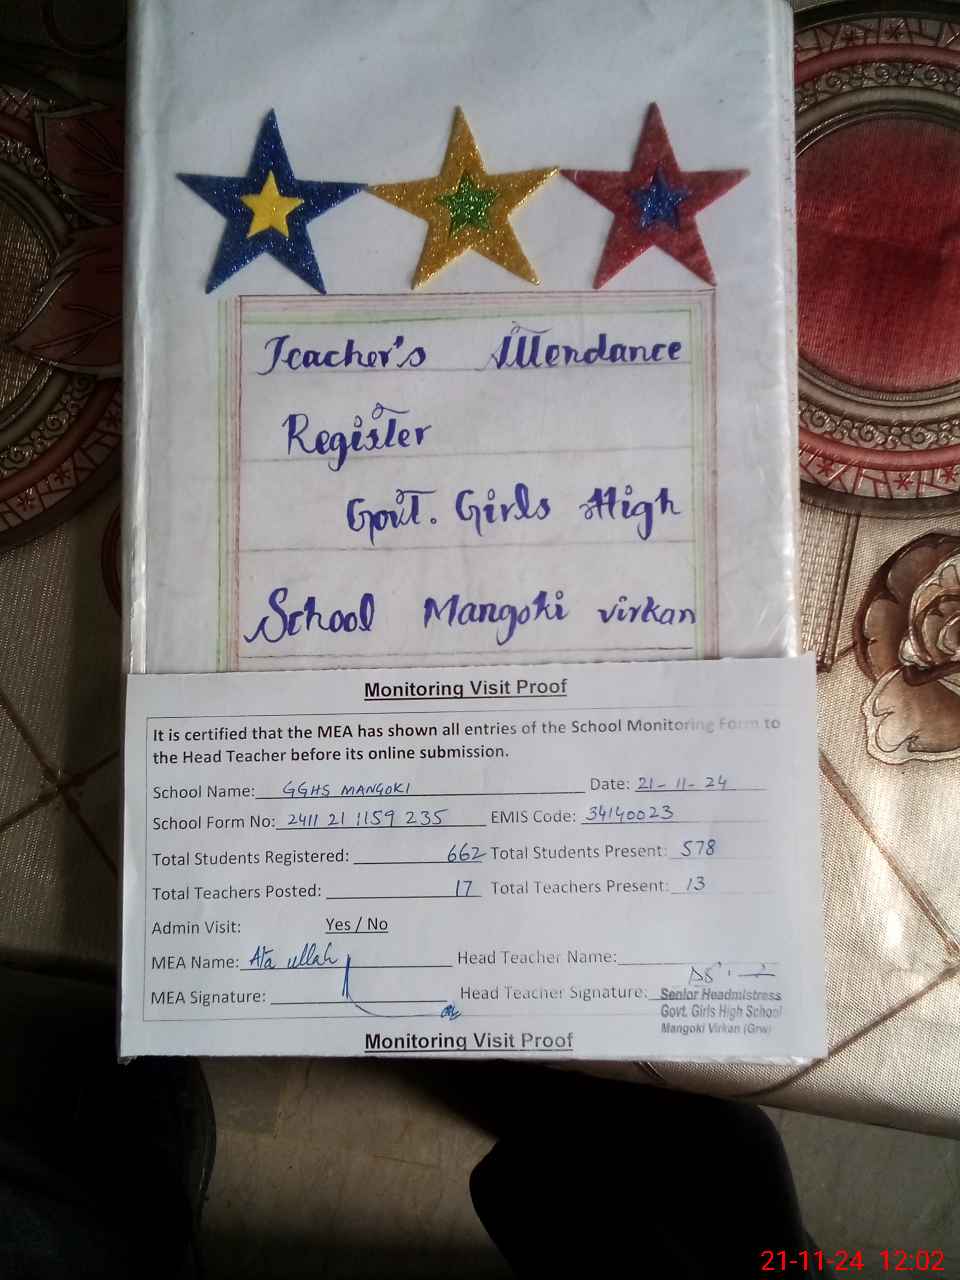 Teacher's Attendance
Register
Govt. Girls High
School Mangoki virkan
Monitoring Visit Proof
It is certified that the MEA has shown all entries of the School Monitoring Form to
the Head Teacher before its online submission.
School Name: GGHS MANGOKI Date: 21-11-24
School Form No: 2411 21 1159 235 EMIS Code: 34140023
Total Students Registered: 662 Total Students Present: 578
Total Teachers Posted: 17 Total Teachers Present: 13
Admin Visit: Yes / No
MEA Name: Ata ullah Head Teacher Name:
MEA Signature: Head Teacher Signature:
Senior Headmistress
Govt. Girls High School
Mangoki Virkan (Grw)
Monitoring Visit Proof
21-11-24 12:02